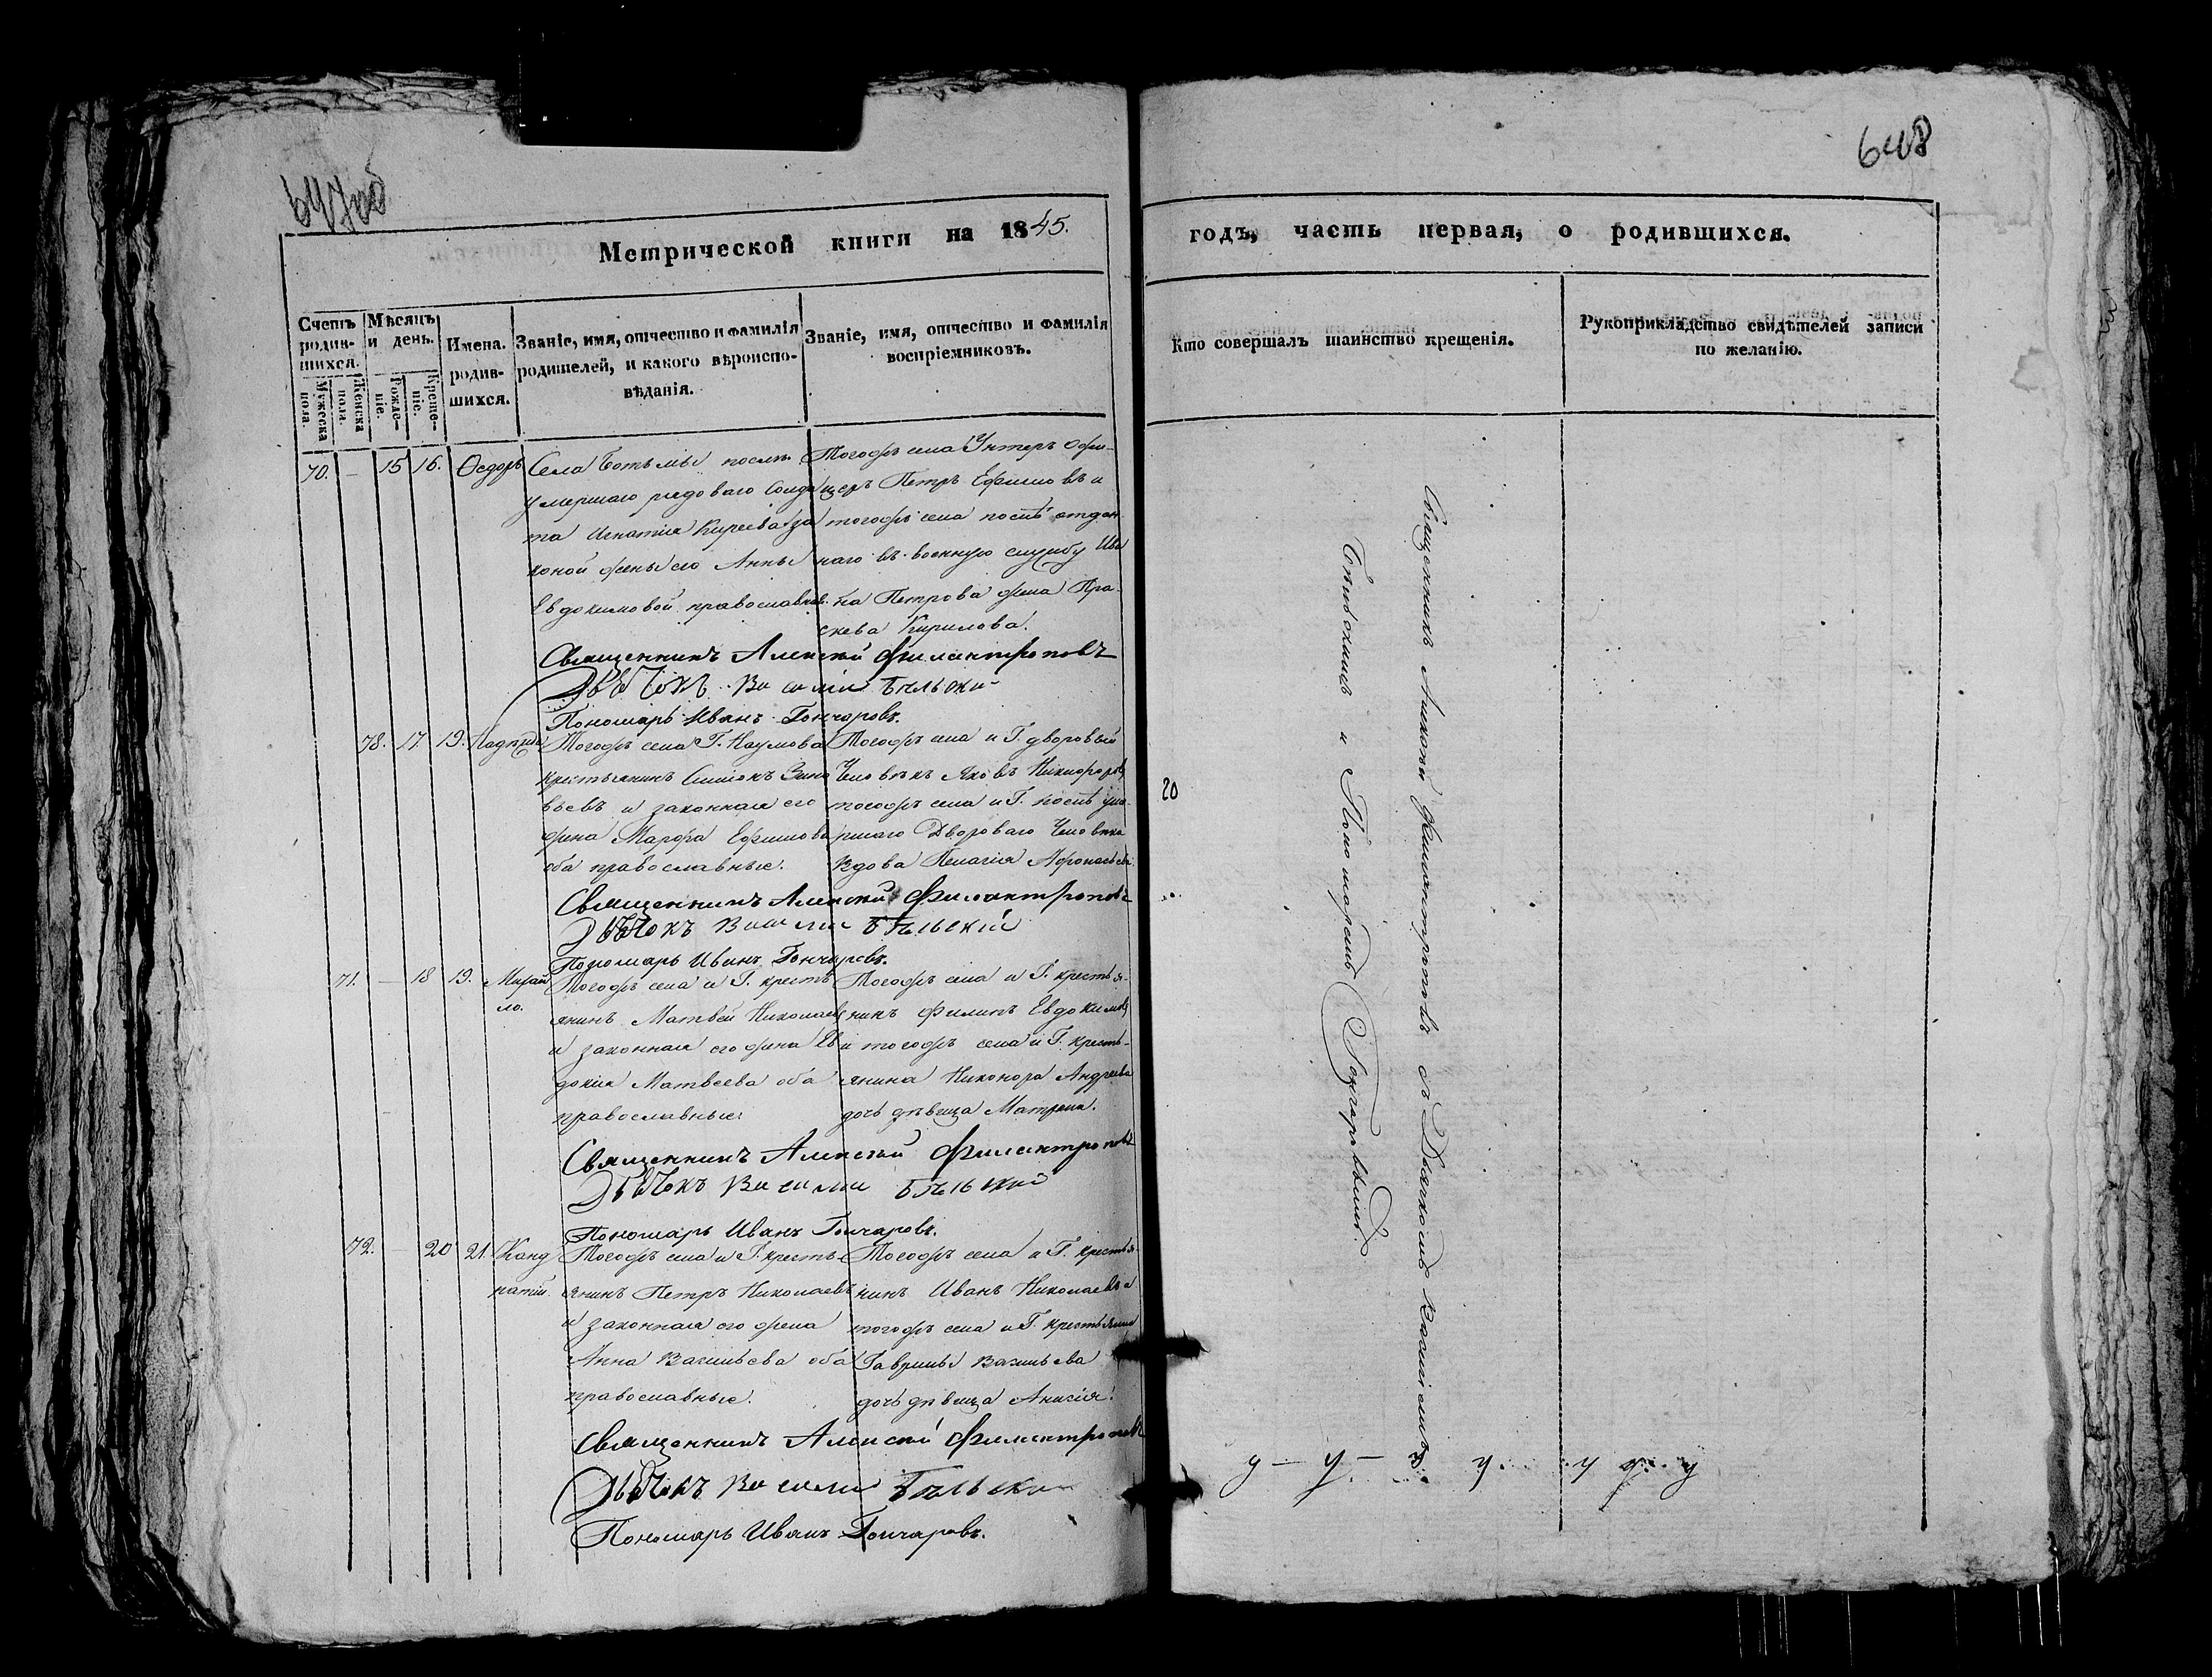 647об
648
Метрической книги на 1845.
годъ, часть первая, о родившихся.
Счетъ родив-шихся.
Мужеска пола.
Женска пола.
Мѣсяцъ и день.
Рожде-ніе.
Креще-ніе.
Имена родив-шихся.
Званіе, имя, отчество и фамилія
родителей, и какого вѣроиспо-
вѣданія.
Званіе, имя, отчество и фамилія
воспріемниковъ.
Кто совершалъ таинство крещенія.
Рукоприкладство свидѣтелей записи
по желанію.
70. — 15 16. Ѳедоръ
Села Ботьмы послѣ
умершаго рядоваго солда
та Игнатія Киреева за
коной жены его Анны
Евдокимовой православ
Тогожъ села Унтеръ Офи-
церъ Петръ Ефимовъ и
тогожъ села послѣ отдан
наго въ военную службу Ива
на Петрова жена Пра-
скева Кирилова.
Священникъ Алексѣй Филантроповъ
Дьячокъ Василій Бѣльскій
Пономарь Иванъ Гончаровъ.
78. 17. 19.
Тогожъ села Г. Наумова
крестьянинъ Симіонъ Зино
вьевъ и законная его
жена Марфа Ефимова
оба православные.
Тогожъ села и Г. дворовый
Человѣкъ Яковъ Никифоровъ
тогожъ села и Г. послѣ уме-
ршаго Двороваго Человѣка
вдова Пелагія Афонасьева
Священникъ Алексѣй Филантроповъ
Дьячокъ Василій Бѣльскій
Пономарь Иванъ Гончаровъ.
71. — 18 19. Михай
ло.
Тогожъ села и Г. кресть
янинъ Матвей Николаевъ
и законная его жена Ев
докія Матвеева оба
православные.
Тогожъ села и Г. крестья-
нинъ Филипъ Евдокимовъ
и тогожъ села и Г. кресть-
янина Никонора Андреева
дочь дѣвица Матрена.
Священникъ Алексѣй Филантроповъ
Дьячокъ Василій Бѣльскій
Пономарь Иванъ Гончаровъ.
72. — 20 21. Канд
ратій.
Тогожъ села и Г. кресть-
янинъ Петръ Николаевъ
и законная его жена
Анна Васильева оба
православные.
Тогожъ села и Г. крестья-
нинъ Иванъ Николаевъ и
тогожъ села и Г. крестьянина
Гаврилы Васильева
дочь дѣвица
Священникъ Алексѣй Филантроповъ
Дьячокъ Василій Бѣльскій
Пономарь Иванъ Гончаровъ.
Священникъ Алексѣй Филантроповъ съ Дьячкомъ Василіемъ
Бѣльскимъ и Пономаремъ Гончаровымъ
20